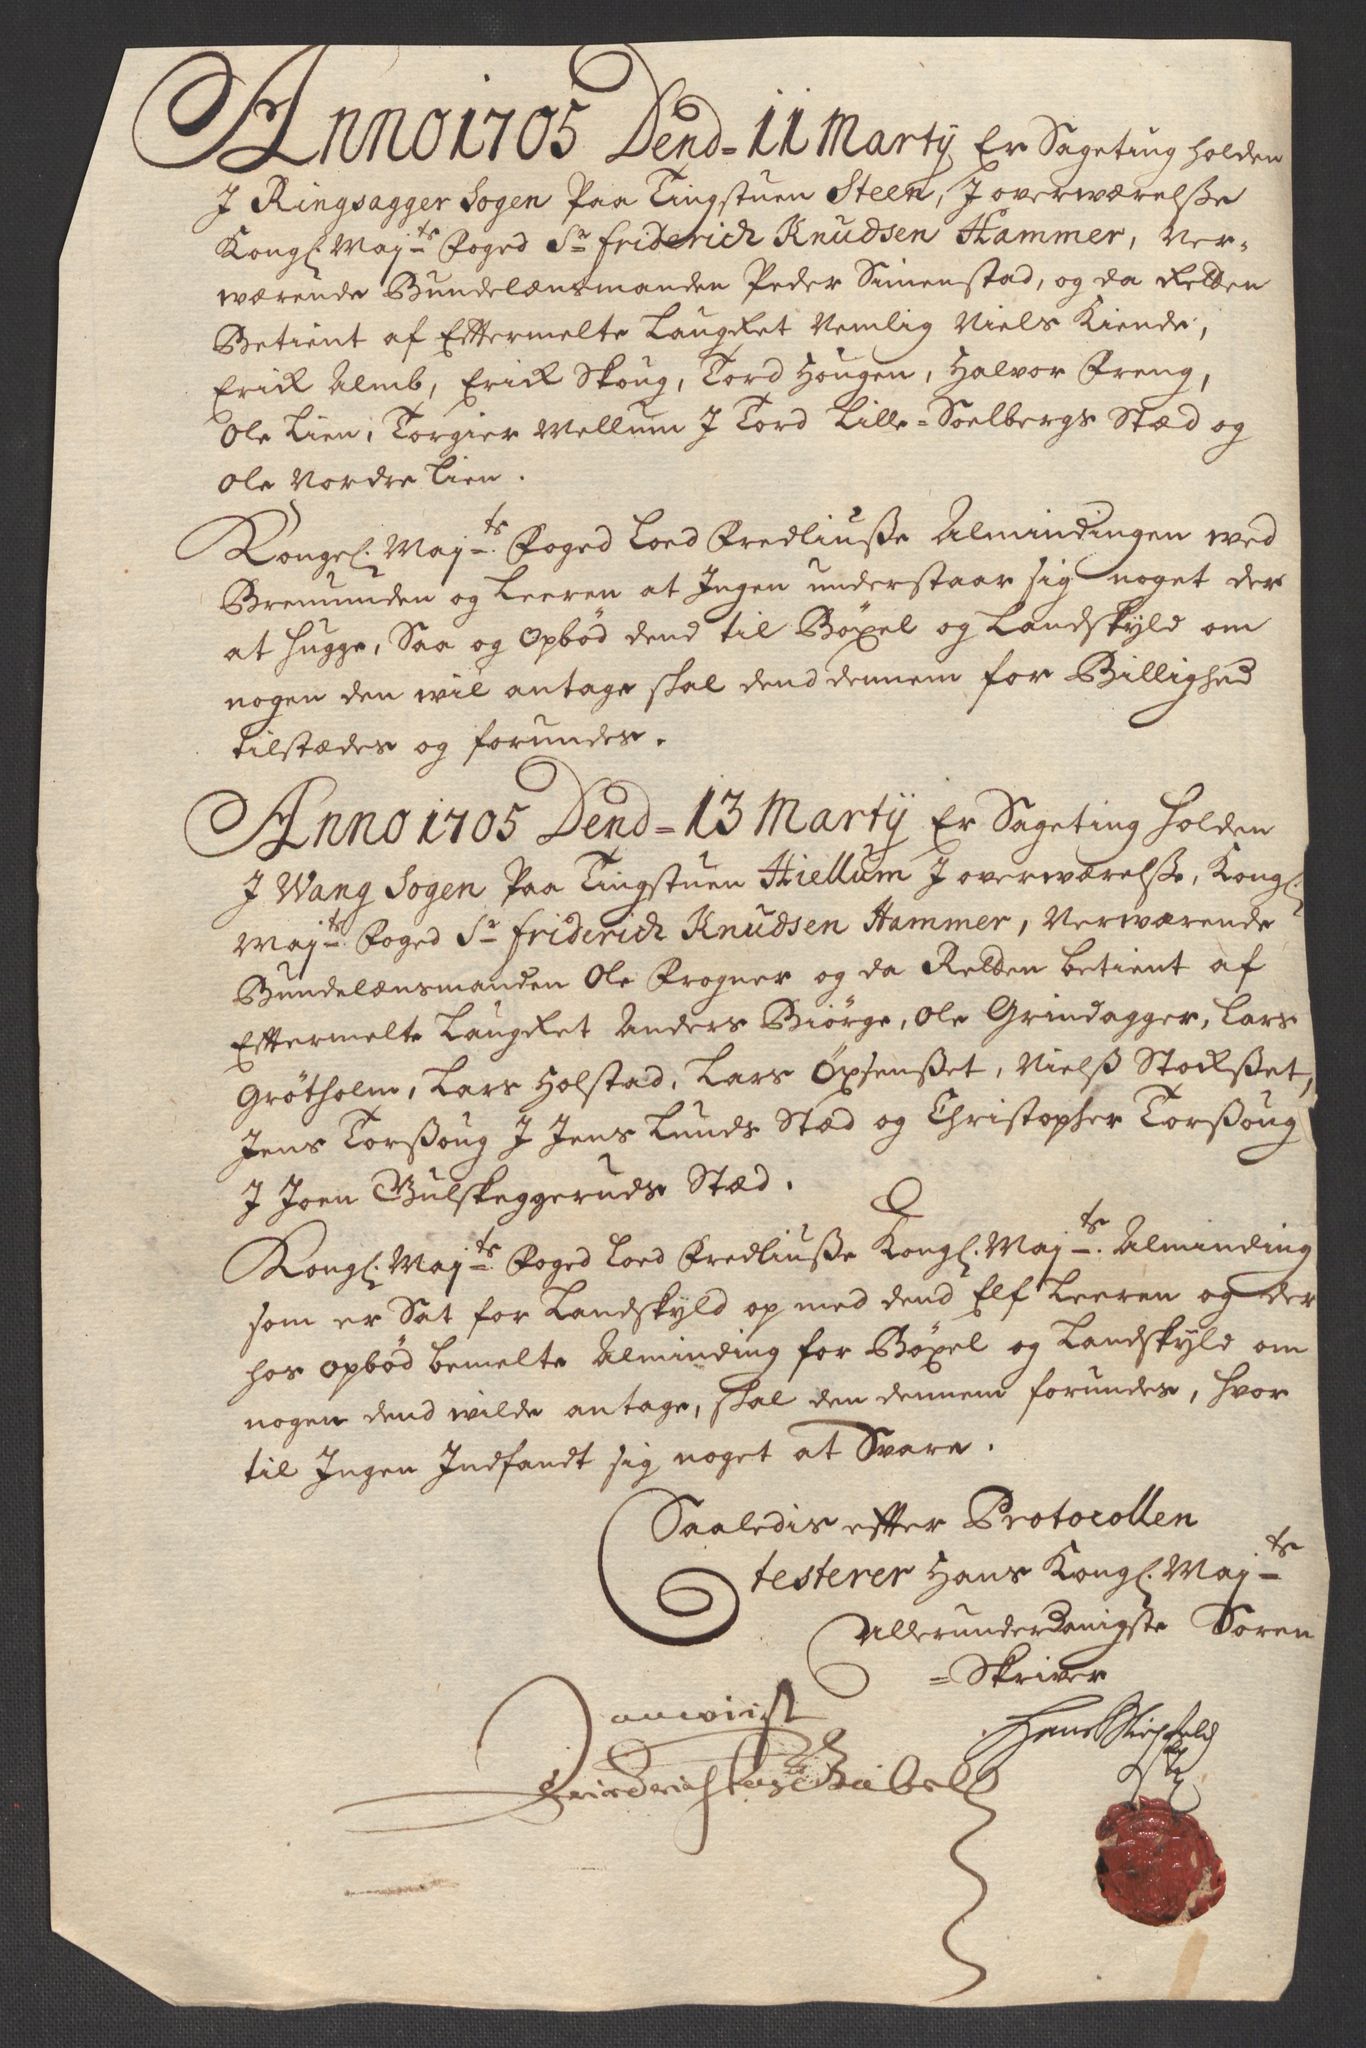 Anno 1705 Dend= 11 Martÿ Er Sageting holden
J Ringsagger Sogen Paa Tingstuen Steen, J overwærelsse
Kongl: Maj:ts Foged Sr Friderich Knudsen Hammer, Ner-
wærende Bundelænsmanden Peder Simenstad, og da Retten
Betient af Effermelte Laugret Nemlig Niels Kiende,
Erick Almb, Erick Skoug, Tord Hougen, Halvor Freng,
Ole Lien, Torgier Mellum J Tord Lille=Soelbergs Stæd og
Ole Nordre Lien.
Kongel: Maj:ts Foged Loed Fredliusse Almindingen wed
Bremunden og Leeren at Jngen understaar sig noget der
at hugge, Saa og Opbød dend til Bøxel og Landskyld om
nogen den wil antage skal dend dennem for Billighed
tilstædes og forundes.
Anno 1705 Dend= 13 Martÿ Er Sageting holden
J Wang Sogen Paa Tingstuen Hiellum J overwærelsse, Kongl:
Maj:ts Foged Sr Friderich Knudsen Hammer, Nerwærende
Bundelænsmanden Ole Frogner og da Retten betient af
Effermelte Laugret Anders Biørge, Ole Grindagger, Lars
Grøtholm, Lars Holstad, Lars Öxsensset, Nielss Stocksset,
Jens Torssoug J Jens Lunds Stæd og Christopher Torssoug
J Joen Gulskeggeruds Stæd.
Kongl: Maj:ts Foged Loed Fredliusse Kongl: Maj:ts Alminding
som er Sat for Landskyld op med dend Elf Leeren og der
hos opbød bemelte Alminding for Bøxel og Landskyld om
nogen dend wilde antage, skal den dennem forundes, hvor
til Jngen Jndfandt sig noget at Svare.
Saaledis effter Protocollen
testerer Hans Kongl: Maj:ts
Allerunderdanigste Soren
=Skriver
Hans